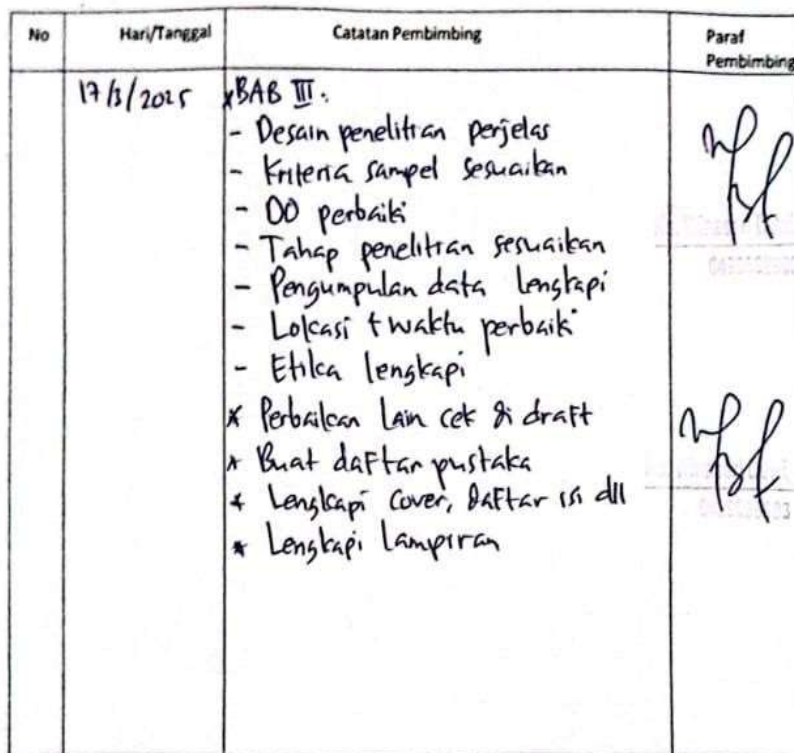 No Hari/Tanggal Catatan Pembimbing Paraf Pembimbing
17/3/2025 * BAB III.
- Desain penelitian perjelas
- Kriteria sampel sesuaikan
- DO perbaiki
- Tahap penelitian sesuaikan
- Pengumpulan data lengkapi
- Lokasi + waktu perbaiki
- Etika lengkapi
* Perbaikan lain cek di draft
* Buat daftar pustaka
* Lengkapi cover, daftar isi dll
* Lengkapi lampiran